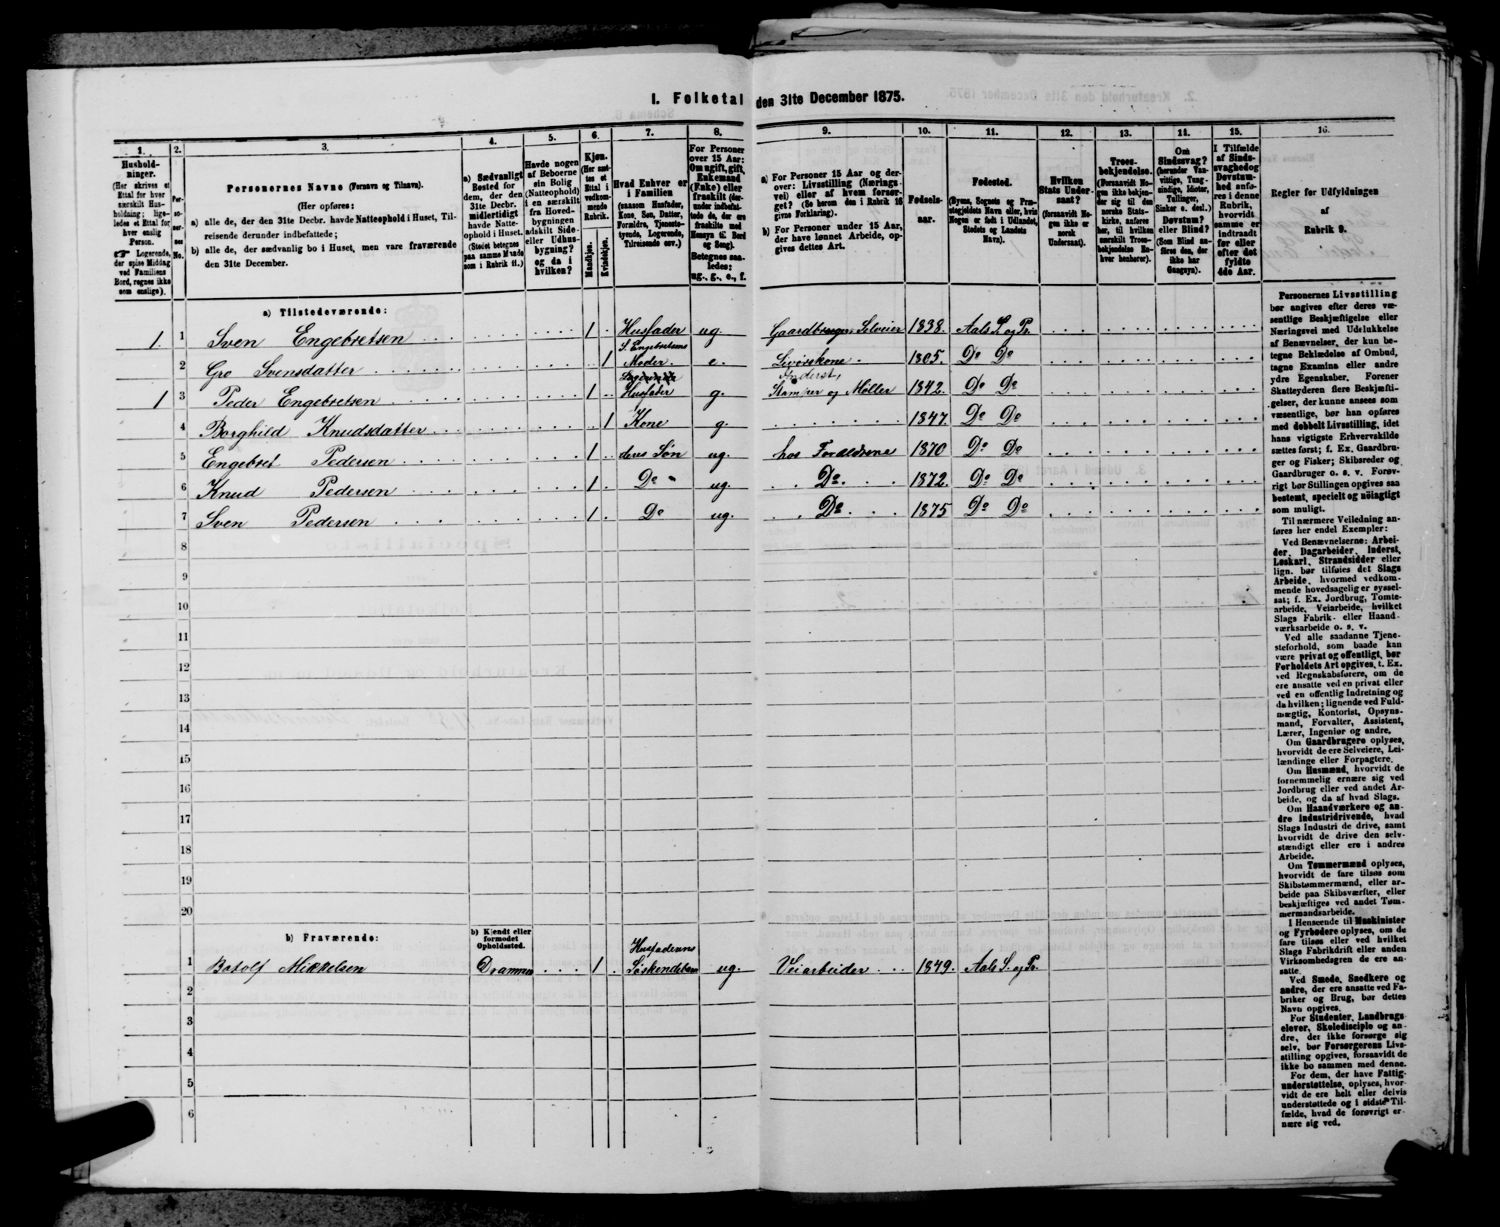 1. Folketal den 31te December 1875.
1. 2. 3. 4. 5. 6. 7. 8. 9. 10. 11. 12. 13. 14. 15. 16.
Husholdninger.
(Her skrives et Ettal for hver særskilt Husholdning; ligeledes et Ettal for hver enslig Person.
Logerende, der spise Middag ved Familiens Bord, regnes ikke som enslige).
Personernes No.
Personernes Navne (Fornavn og Tilnavn).
(Her opføres:
a) alle de, der den 31te Decbr. havde Natteophold i Huset, Tilreisende derunder indbefattede;
b) alle de, der sædvanlig bo i Huset, men vare fraværende den 31te December.
a) Sædvanligt Bosted for dem, der den 31te Decbr. midlertidigt havde Natteophold i Huset.
(Stedet betegnes paa samme Maade som i Rubrik 11.)
Havde nogen af Beboerne sin Bolig (Natteophold) i en særskilt fra Hovedbygningen adskilt Side- eller Udhusbygning? og da i hvilken?
Kjøn.
(Her sættes et Ettal i vedkommende Rubrik.
Mandkjøn. Kvindekjøn.
Hvad Enhver er i Familien
(saasom Husfader, Kone, Søn, Datter, Forældre, Tjenestetyende, Logerende, Tilreisende osv.)
For Personer over 15 Aar: Om ugift, gift, Enkemand (Enke) eller fraskilt
Betegnes saaledes: ug., g., e., f.
a) For Personer 15 Aar og derover: Livsstilling (Næringsvei) eller af hvem forsørget? (Se herom den i Rubrik 16 givne Forklaring).
b) For Personer under 15 Aar, der have lønnet Arbeide, opgives dettes Art.
Fødselsaar.
Fødested.
(Byens, Sognets og Præstegjeldets Navn eller, hvis Nogen er født i Udlandet, Stedets og Landets Navn).
Hvilken Stats Undersaat?
(forsaavidt Nogen ikke er norsk Undersaat).
Troesbekjendelse.
(Forsaavidt Nogen ikke bekjender sig til den norske Statskirke, anføres her, til hvilken særskilt Troesbekjendelse Enhver henhører).
Om Sindssvag?
Døvstum? eller Blind?
(Som Blind anføres den, der ikke har Gangsyn).
I Tilfælde af Sindssvaghed og Døvstumhed anføres i denne Rubrik, hvorvidt samme er indtraadt før eller efter det fyldte 4de Aar.
Regler for Udfyldningen af Rubrik 9.
a) Tilstedeværende:
1. 1 Sven Engebretsen 1 Husfader ug. Gaardbruger Selveier 1838. Aals S. og Pr.
2 Gro Svensdatter 1 S. Engebretsens Moder e. 1805. Do Do
1 3 Peder Engebretsen 1 Husfader g. Inderst, Stamper og Møller 1842. Do Do
4 Borghild Knudsdatter 1 Kone g. 1847. Do Do
5 Engebret Pedersen 1 deres Søn ug. hos Forældrene 1870 Do Do
6 Knud Pedersen 1 Do ug. Do 1872. Do Do
7 Sven Pedersen 1 Do ug. Do 1875 Do Do
8
9
10
11
12
13
14
15
16
17
18
19
20
b) Fraværende:
b) Kjendt eller formodet Opholdssted.
1 Botolf Mikkelsen Drammen 1 Husfaderens Søskendebarn ug. Veiarbeider 1849. Aals S. og Pr.
2
3
4
5
6
Personernes Livsstilling
bør angives efter deres væsentlige
Beskjæftigelse eller
Næringsvei med Udelukkelse
af Benævnelser, der kun betegne
Beklædelse af Ombud,
tagne Examina eller andre
ydre Egenskaber. Forener
Skatteyderen flere Beskjæftigelser,
der kunne ansees som
væsentlige, bør han opføres
med dobbelt Livsstilling, idet
hans vigtigste Erhvervskilde
sættes først; f. Ex. Gaardbruger
og Fisker; Skibsreder og
Gaardbruger o. s. v. Forøvrigt
bør Stillingen opgives saa
bestemt, specielt og nøiagtigt
som muligt.
Til nærmere Veiledning anføres
her endel Exempler:
Ved Benævnelserne: Arbeider,
Dagarbeider, Inderst,
Løskarl, Strandsidder eller
lign. bør tilføies det Slags
Arbeide, hvormed vedkommende
hovedsagelig er sysselsat;
f. Ex. Jordbrug, Tomtearbeide,
Veiarbeide, hvilket
Slags Fabrik- eller Haandværksarbeide
o. s. v.
Ved alle saadanne Tjenesteforhold,
som baade kan
være privat og offentligt, bør
Forholdets Art opgives, t. Ex.
ved Regnskabsførere, om de
ere ansatte ved en privat eller
ved en offentlig Indretning og
da hvilken; lignende ved Fuldmægtig,
Kontorist, Opsynsmand,
Forvalter, Assistent,
Lærer, Ingeniør og andre.
Om Gaardbrugere oplyses,
hvorvidt de ere Selveiere, Leilændinge
eller Forpagtere.
Om Husmænd, hvorvidt de
fornemmelig ernære sig ved
Jordbrug eller ved andet Arbeide,
og da af hvad Slags.
Om Haandværkere og andre
Industridrivende, hvad
Slags Industri de drive, samt
hvorvidt de drive den selvstændigt
eller ere i andres
Arbeide.
Om Tømmermænd oplyses,
hvorvidt de fare tilsøs som
Skibstømmermænd, eller arbeide
paa Skibsværfter, eller
beskjæftiges ved andet Tømmermandsarbeide.
I Henseende til Maskinister
og Fyrbødere oplyses, om de
fare tilsøs eller ved hvilket
Slags Fabrikdrift eller anden
Virksomhedsgren de ere ansatte.
Ved Smede, Snedkere og
andre, der ere ansatte ved Fabriker
og Brug, bør dettes
Navn opgives.
For Studenter, Landbrugselever,
Skoledisciple og andre,
der ikke forsørge sig
selv, bør Forsørgerens Livsstilling
opgives, forsaavidt de
ikke bo sammen med denne.
For dem, der have Fattigunderstøttelse,
oplyses, hvorvidt
de ere helt eller delvis
understøttede og i sidste Tilfælde,
hvad de forøvrigt ernære
sig ved.